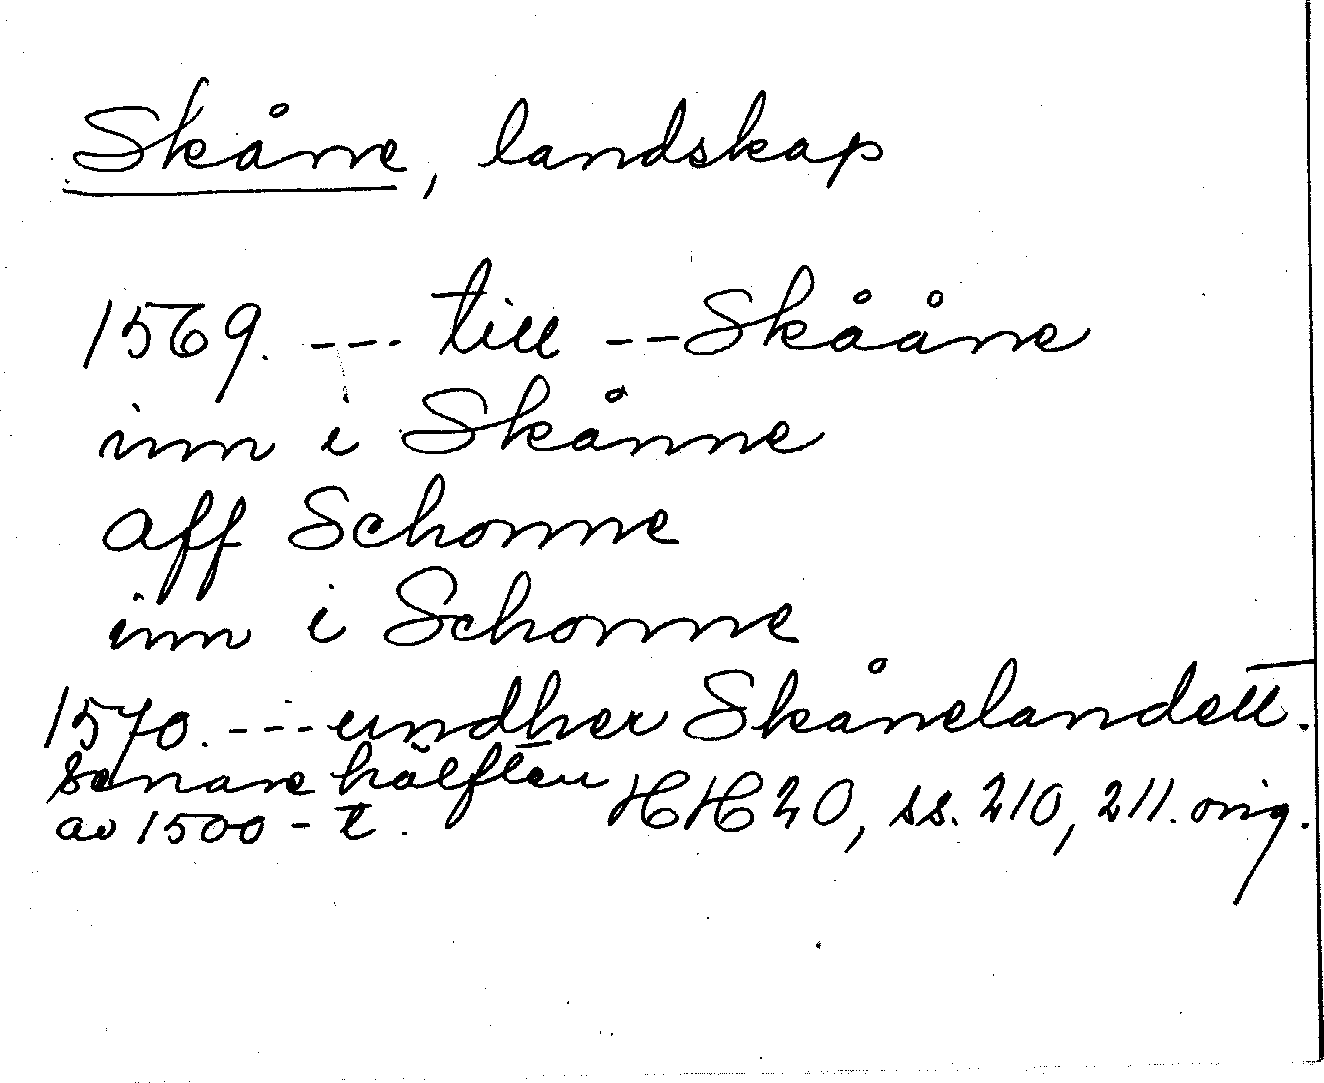 Skåne, landskap
1569. --- till -- Skååne
inn i Skånne
aff Schonne
inn i Schonne
1570. --- undher Skånelandett.
Senare hälften
av 1500-t. HH 20, ss. 210, 211. orig.